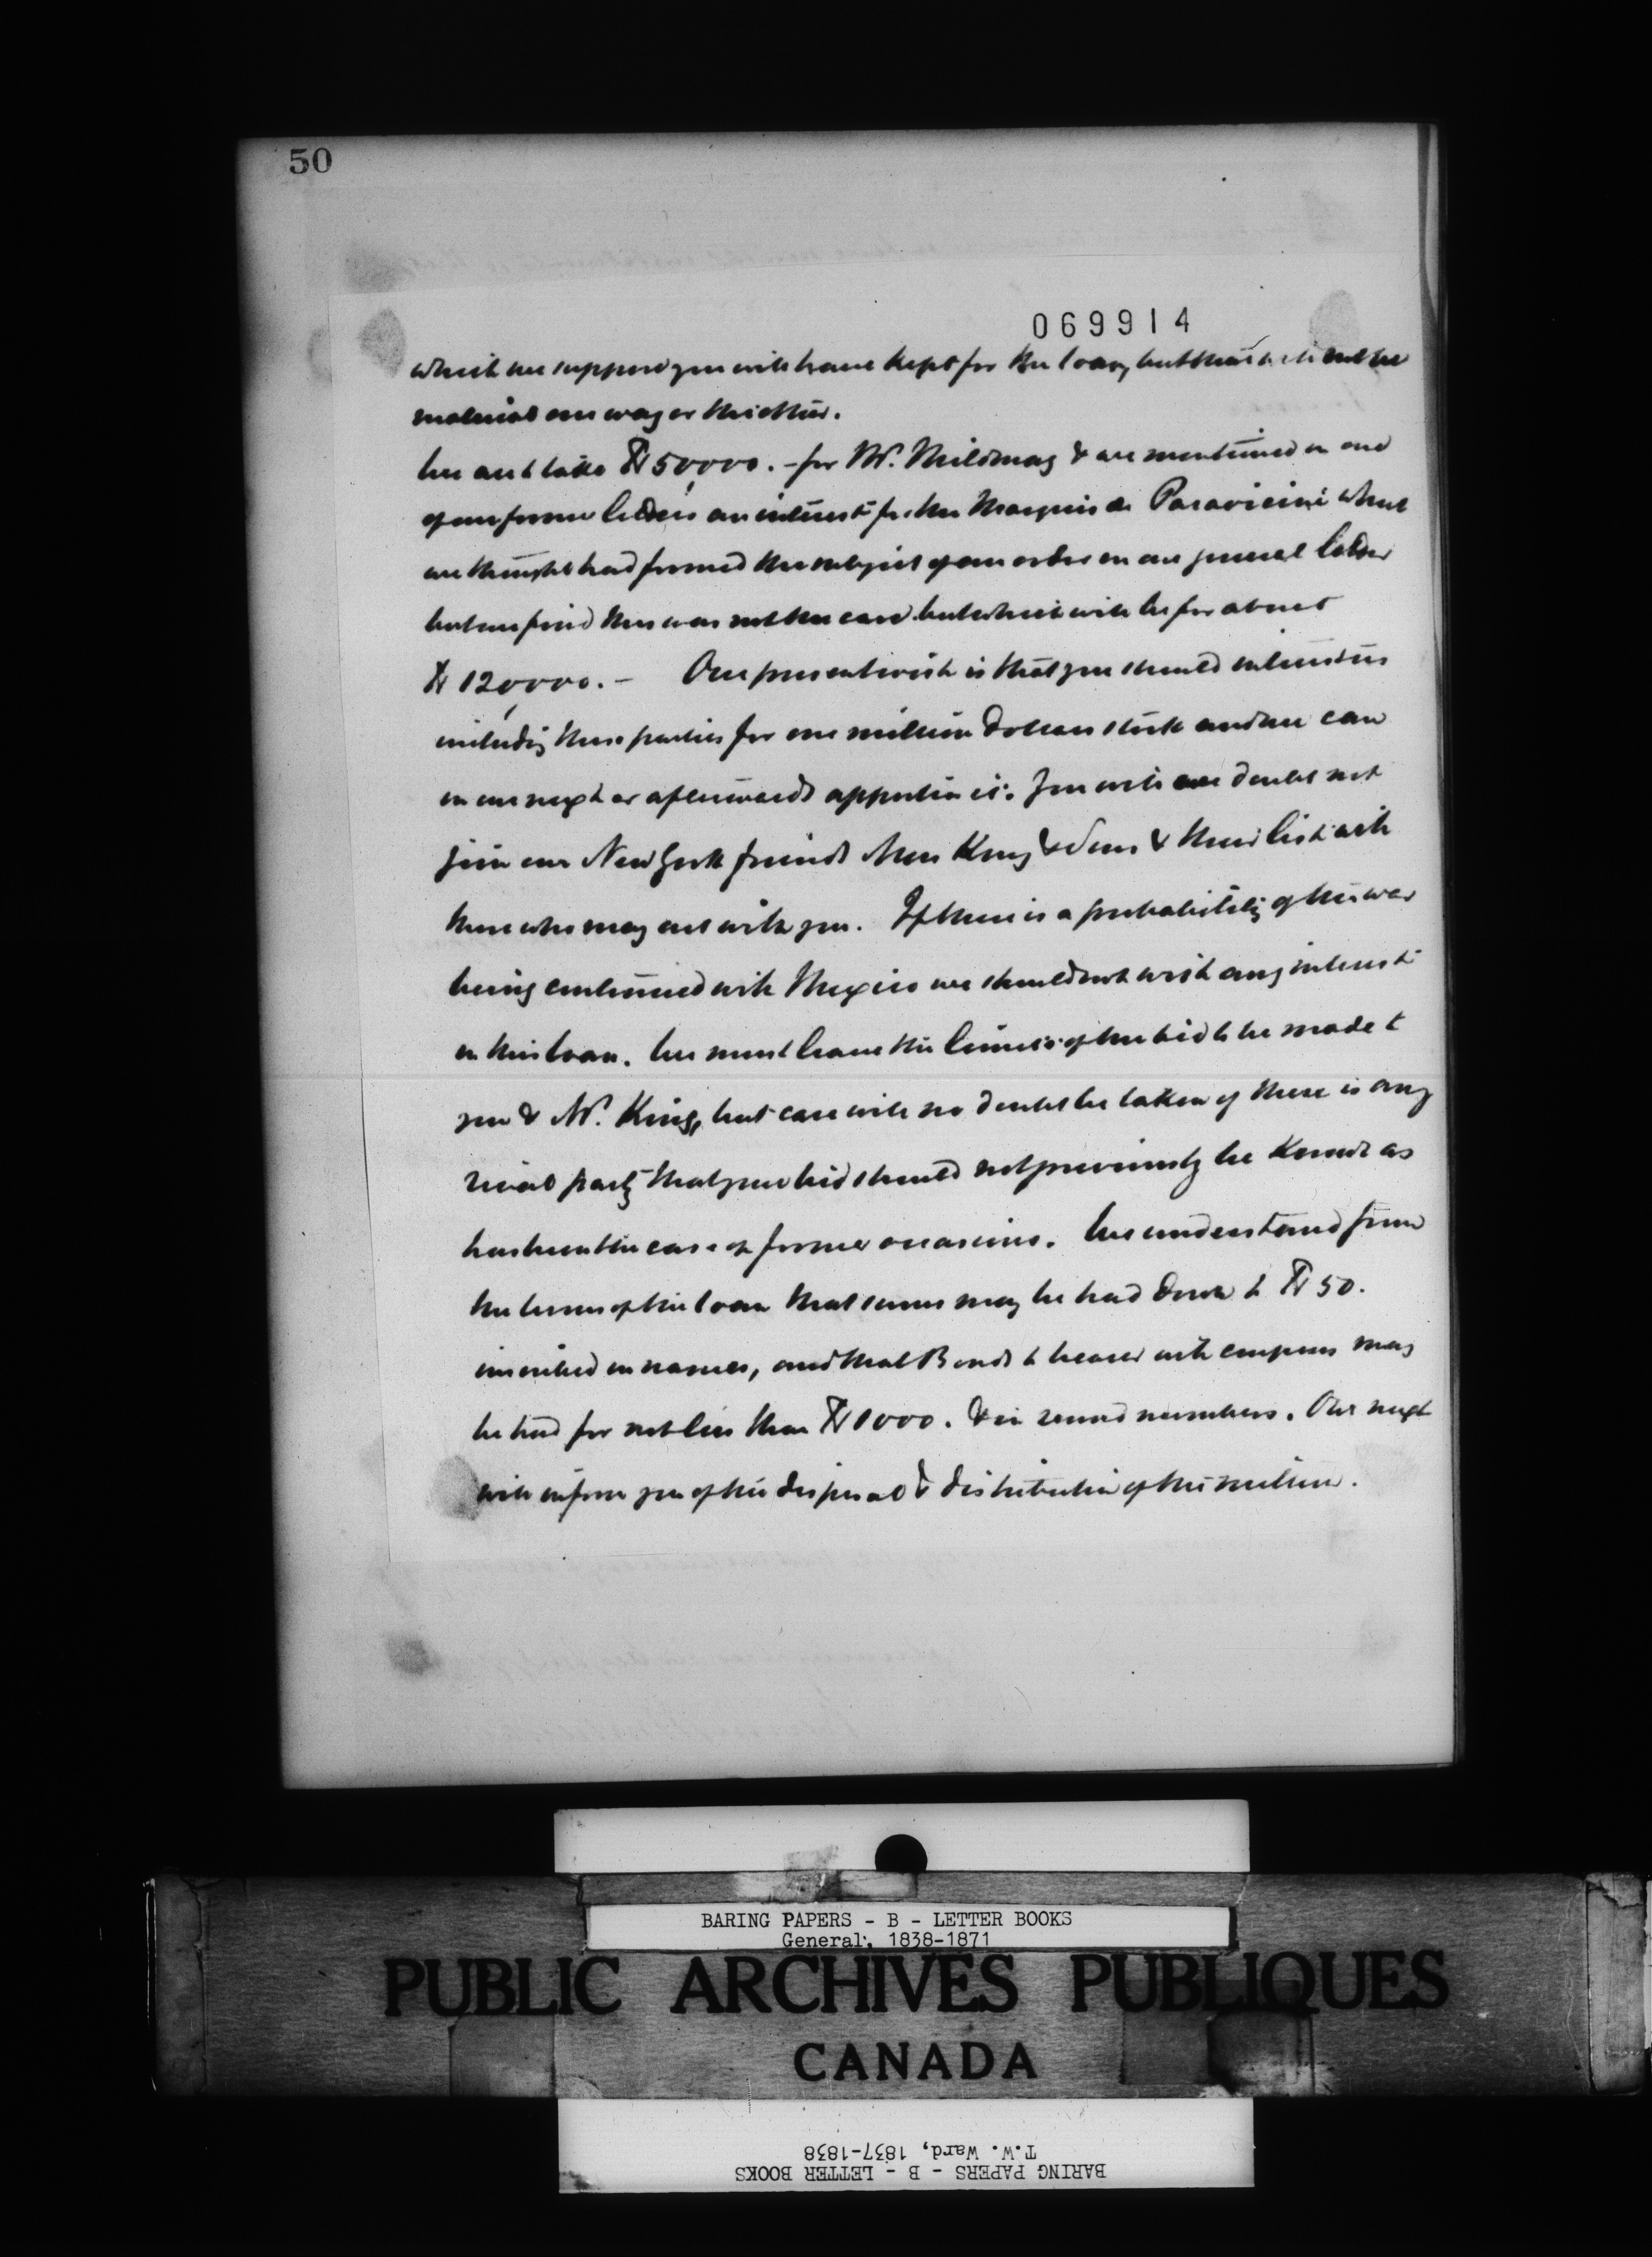 50
069914
which we suppose you will have kept for the loan, but this will not be
material one way or the other.
We are to take $50,000.- for Mr. Mildmay & we mentioned in one
of our former letters an interest for the Marquis de Paravicini which
we thought had formed the subject of an order in our general letter
but we find this was not the case but which will be for about
$120,000.- Our present wish is that you should interest us
including these parties for one million Dollars stock and we can
in our next or afterwards apportion it. You will we doubt not
join our New York friends Mess King & Sons & their list with
those who may act with you. If there is a probability of the war
being continued with Mexico we should not wish any interest
in this loan. We must leave the limits of the bid to be made to
you & Mr. King, but care will no doubt be taken if there is any
rival party that your bid should not previously be known as
has been the case on former occasions. We understand from
the terms of the loan that sums may be had down to $50.
inscribed in names, and that Bonds to bearer with coupons may
be had for not less than $1000. & in round numbers. Our next
will inform you of the disposal & distribution of the million.
BARING PAPERS - B - LETTER BOOKS
General, 1838-1871
PUBLIC ARCHIVES PUBLIQUES
CANADA
BARING PAPERS - B - LETTER BOOKS
T.W. Ward, 1837-1838